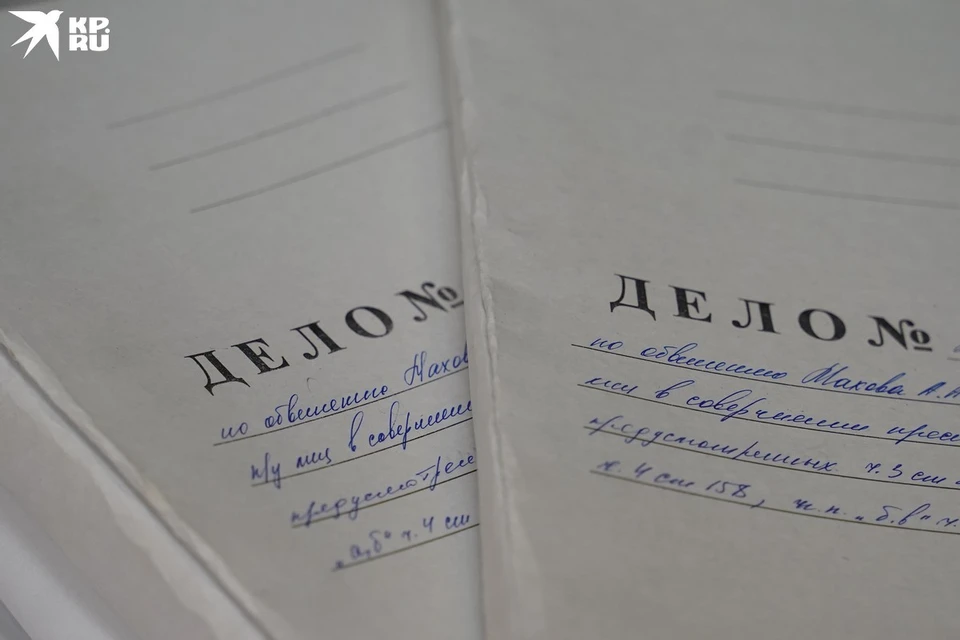 KP.
RU
ДЕЛО №
по обвинению Махов
др лиц в соверш
предусмотре
„а,б" ч. 4 ст
ДЕЛО №
по обвинению Махова А.А
лиц в совершении прес
предусмотренных ч. 3 ст
ч. 4 ст 158, п.п. „б,в" ч.